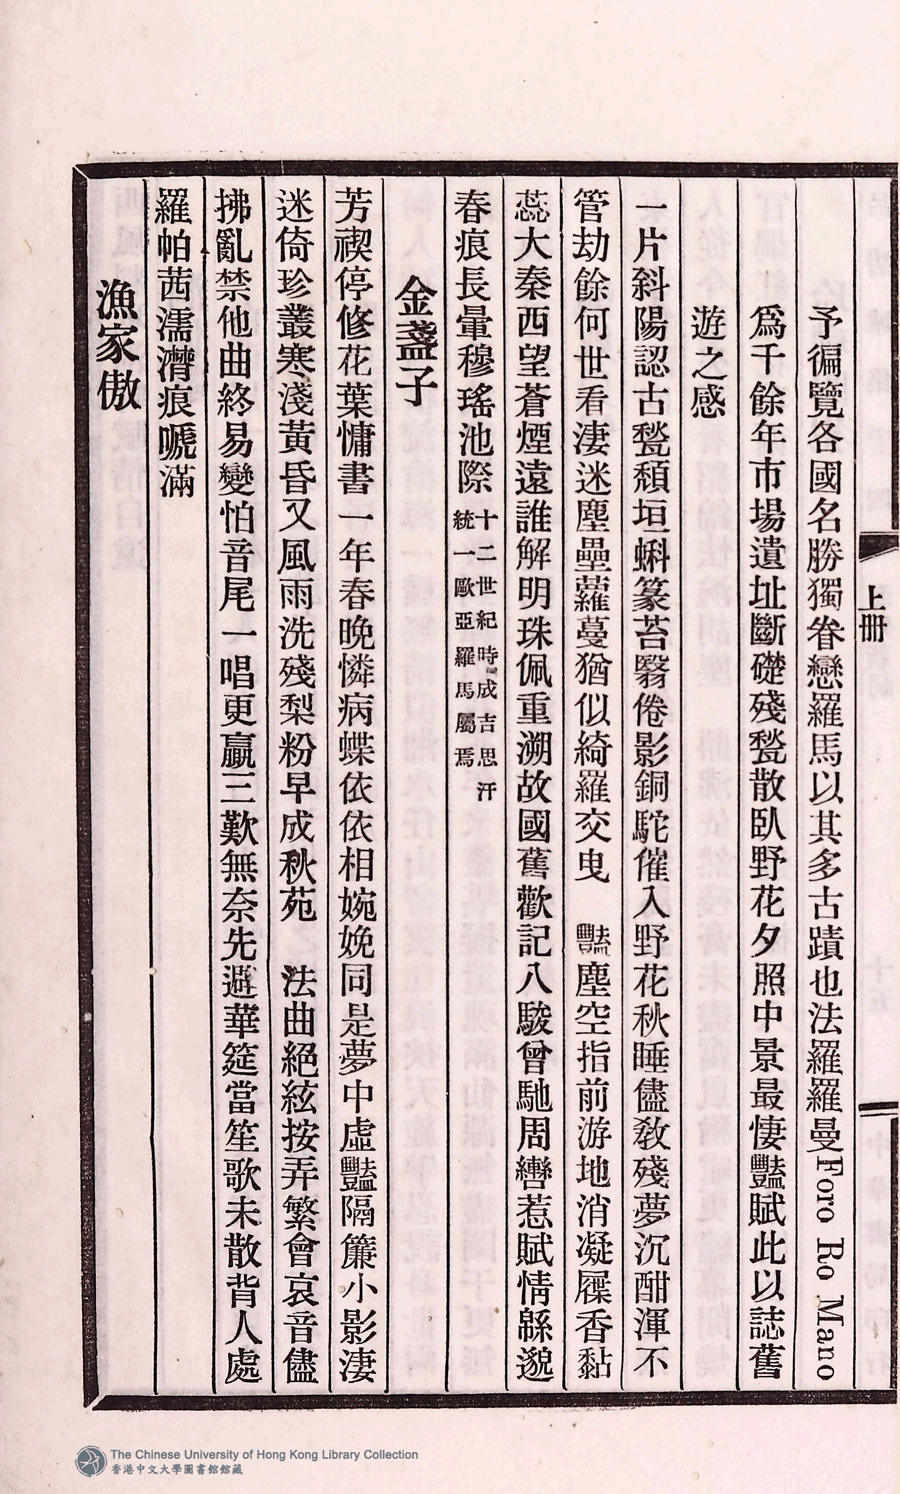 上冊
予徧覽各國名勝獨眷戀羅馬以其多古蹟也法羅羅曼Foro Ro Mano
爲千餘年市場遺址斷礎殘甃散臥野花夕照中景最悽豔賦此以誌舊
遊之感
一片斜陽認古甃頹垣蝌篆苔翳倦影銅駝催入野花秋睡儘敎殘夢沉酣渾不
管劫餘何世看淒迷塵壘蘿蔓猶似綺羅交曳　豔塵空指前游地消凝屧香黏
蕊大秦西望蒼煙遠誰解明珠佩重溯故國舊歡記八駿曾馳周轡惹賦情緜邈
春痕長暈穆瑤池際十二世紀時成吉思汗統一歐亞羅馬屬焉
金盞子
芳禊停修花葉慵書一年春晚憐病蝶依依相婉娩同是夢中虛豔隔簾小影淒
迷倚珍叢寒淺黃昏又風雨洗殘梨粉早成秋苑　法曲絕絃按弄繁會哀音儘
拂亂禁他曲終易變怕音尾一唱更贏三歎無奈先避華筵當笙歌未散背人處
羅帕茜濡潸痕嗁滿
漁家傲
The Chinese University of Hong Kong Library Collection
香港中文大學圖書館館藏